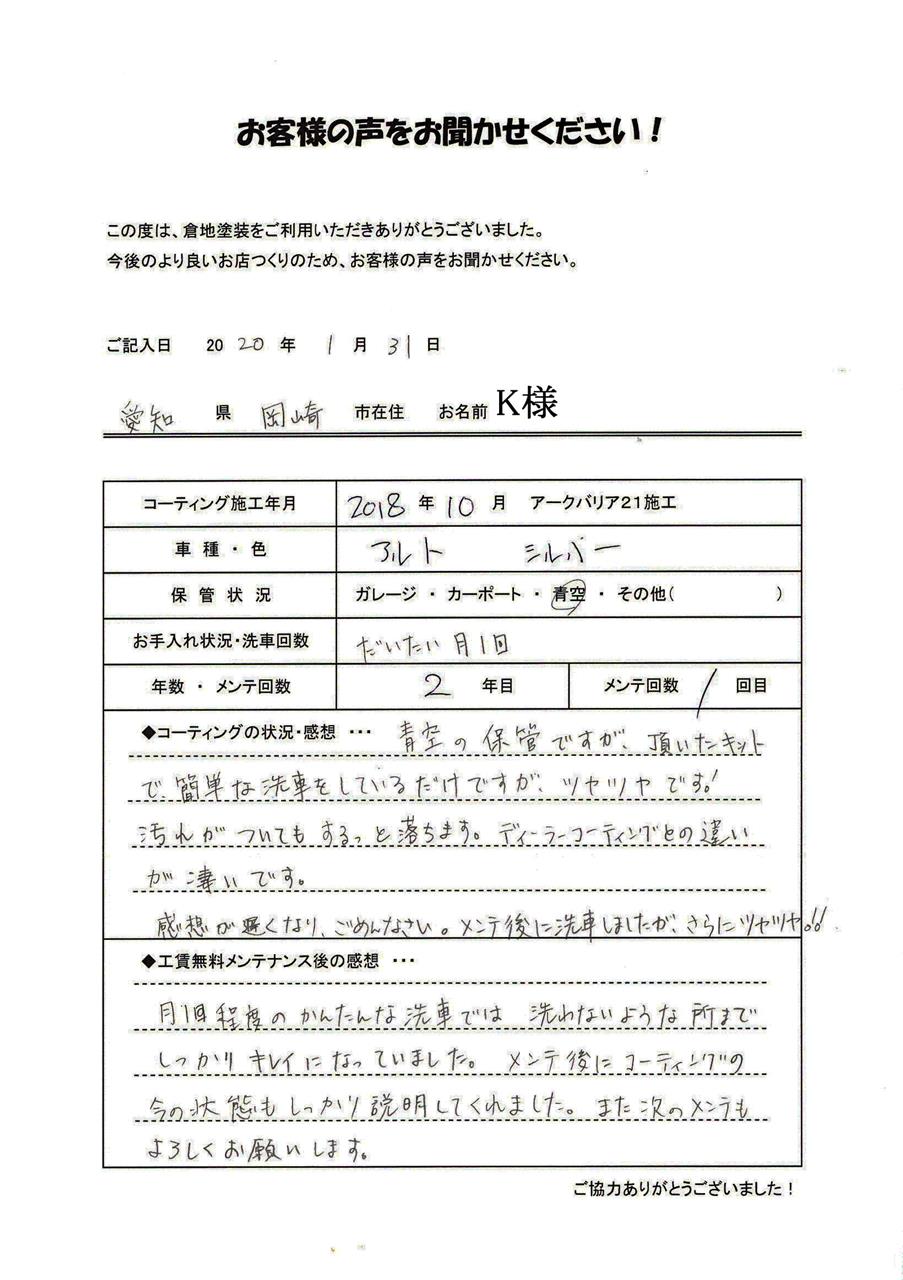 お客様の声をお聞かせください！
この度は、倉地塗装をご利用いただきありがとうございました。
今後のより良いお店つくりのため、お客様の声をお聞かせください。
ご記入日 2020 年 1 月 31 日
愛知 県 岡崎 市在住 お名前 K様
コーティング施工年月 2018 年 10 月 アークバリア21施工
車種・色 アルト シルバー
保管状況 ガレージ ・ カーポート ・ 青空 ・ その他( )
お手入れ状況・洗車回数 だいたい月1回
年数 ・ メンテ回数 2 年目 メンテ回数 1 回目
◆コーティングの状況・感想 ・・・ 青空の保管ですが、頂いたキット
で、簡単な洗車をしているだけですが、ツヤツヤです!
汚れがついてもするっと落ちます。ディーラーコーティングとの違い
が凄いです。
感想が遅くなり、ごめんなさい。メンテ後に洗車しましたが、さらにツヤツヤ!!
◆工賃無料メンテナンス後の感想 ・・・
月1回程度のかんたんな洗車では 洗わないような所まで
しっかりキレイになっていました。 メンテ後にコーティングの
今の状態もしっかり説明してくれました。また次のメンテも
よろしくお願いします。
ご協力ありがとうございました！